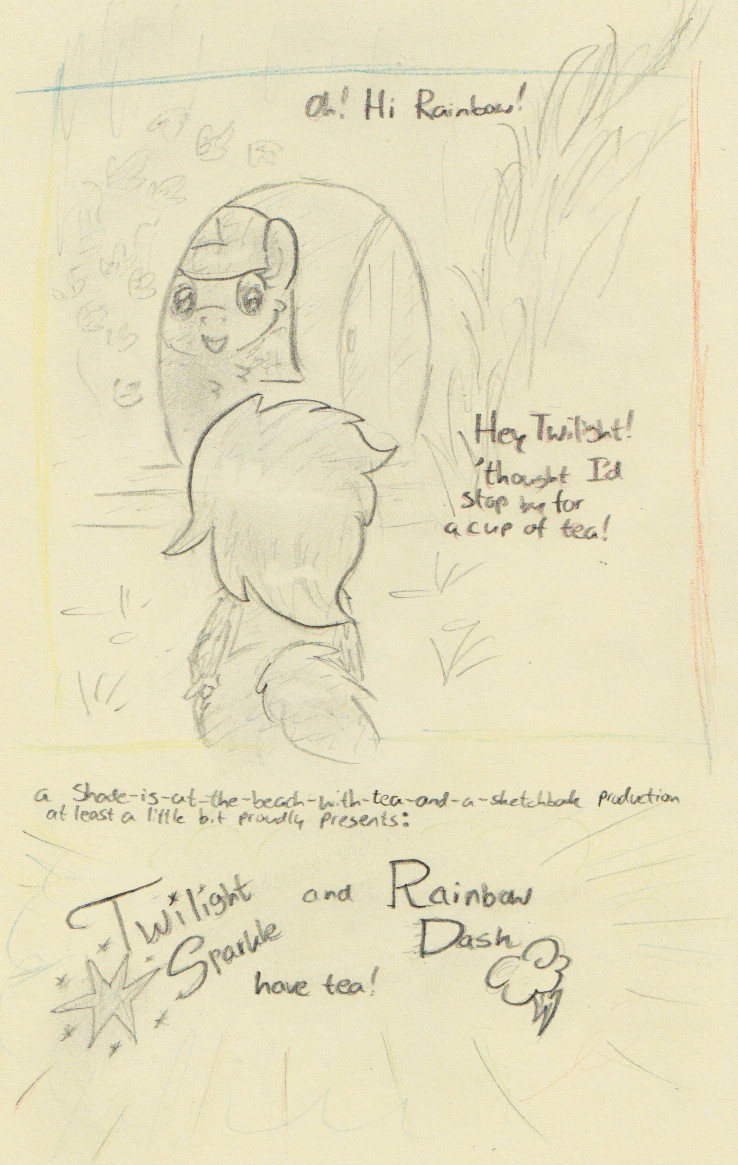 Oh! Hi Rainbow!
Hey Twilight!
'thought I'd
stop by for
a cup of tea!
a Shade-is-at-the-beach-with-tea-and-a-sketchbook production
at least a little bit proudly presents:
Twilight and Rainbow
Sparkle Dash
have tea!